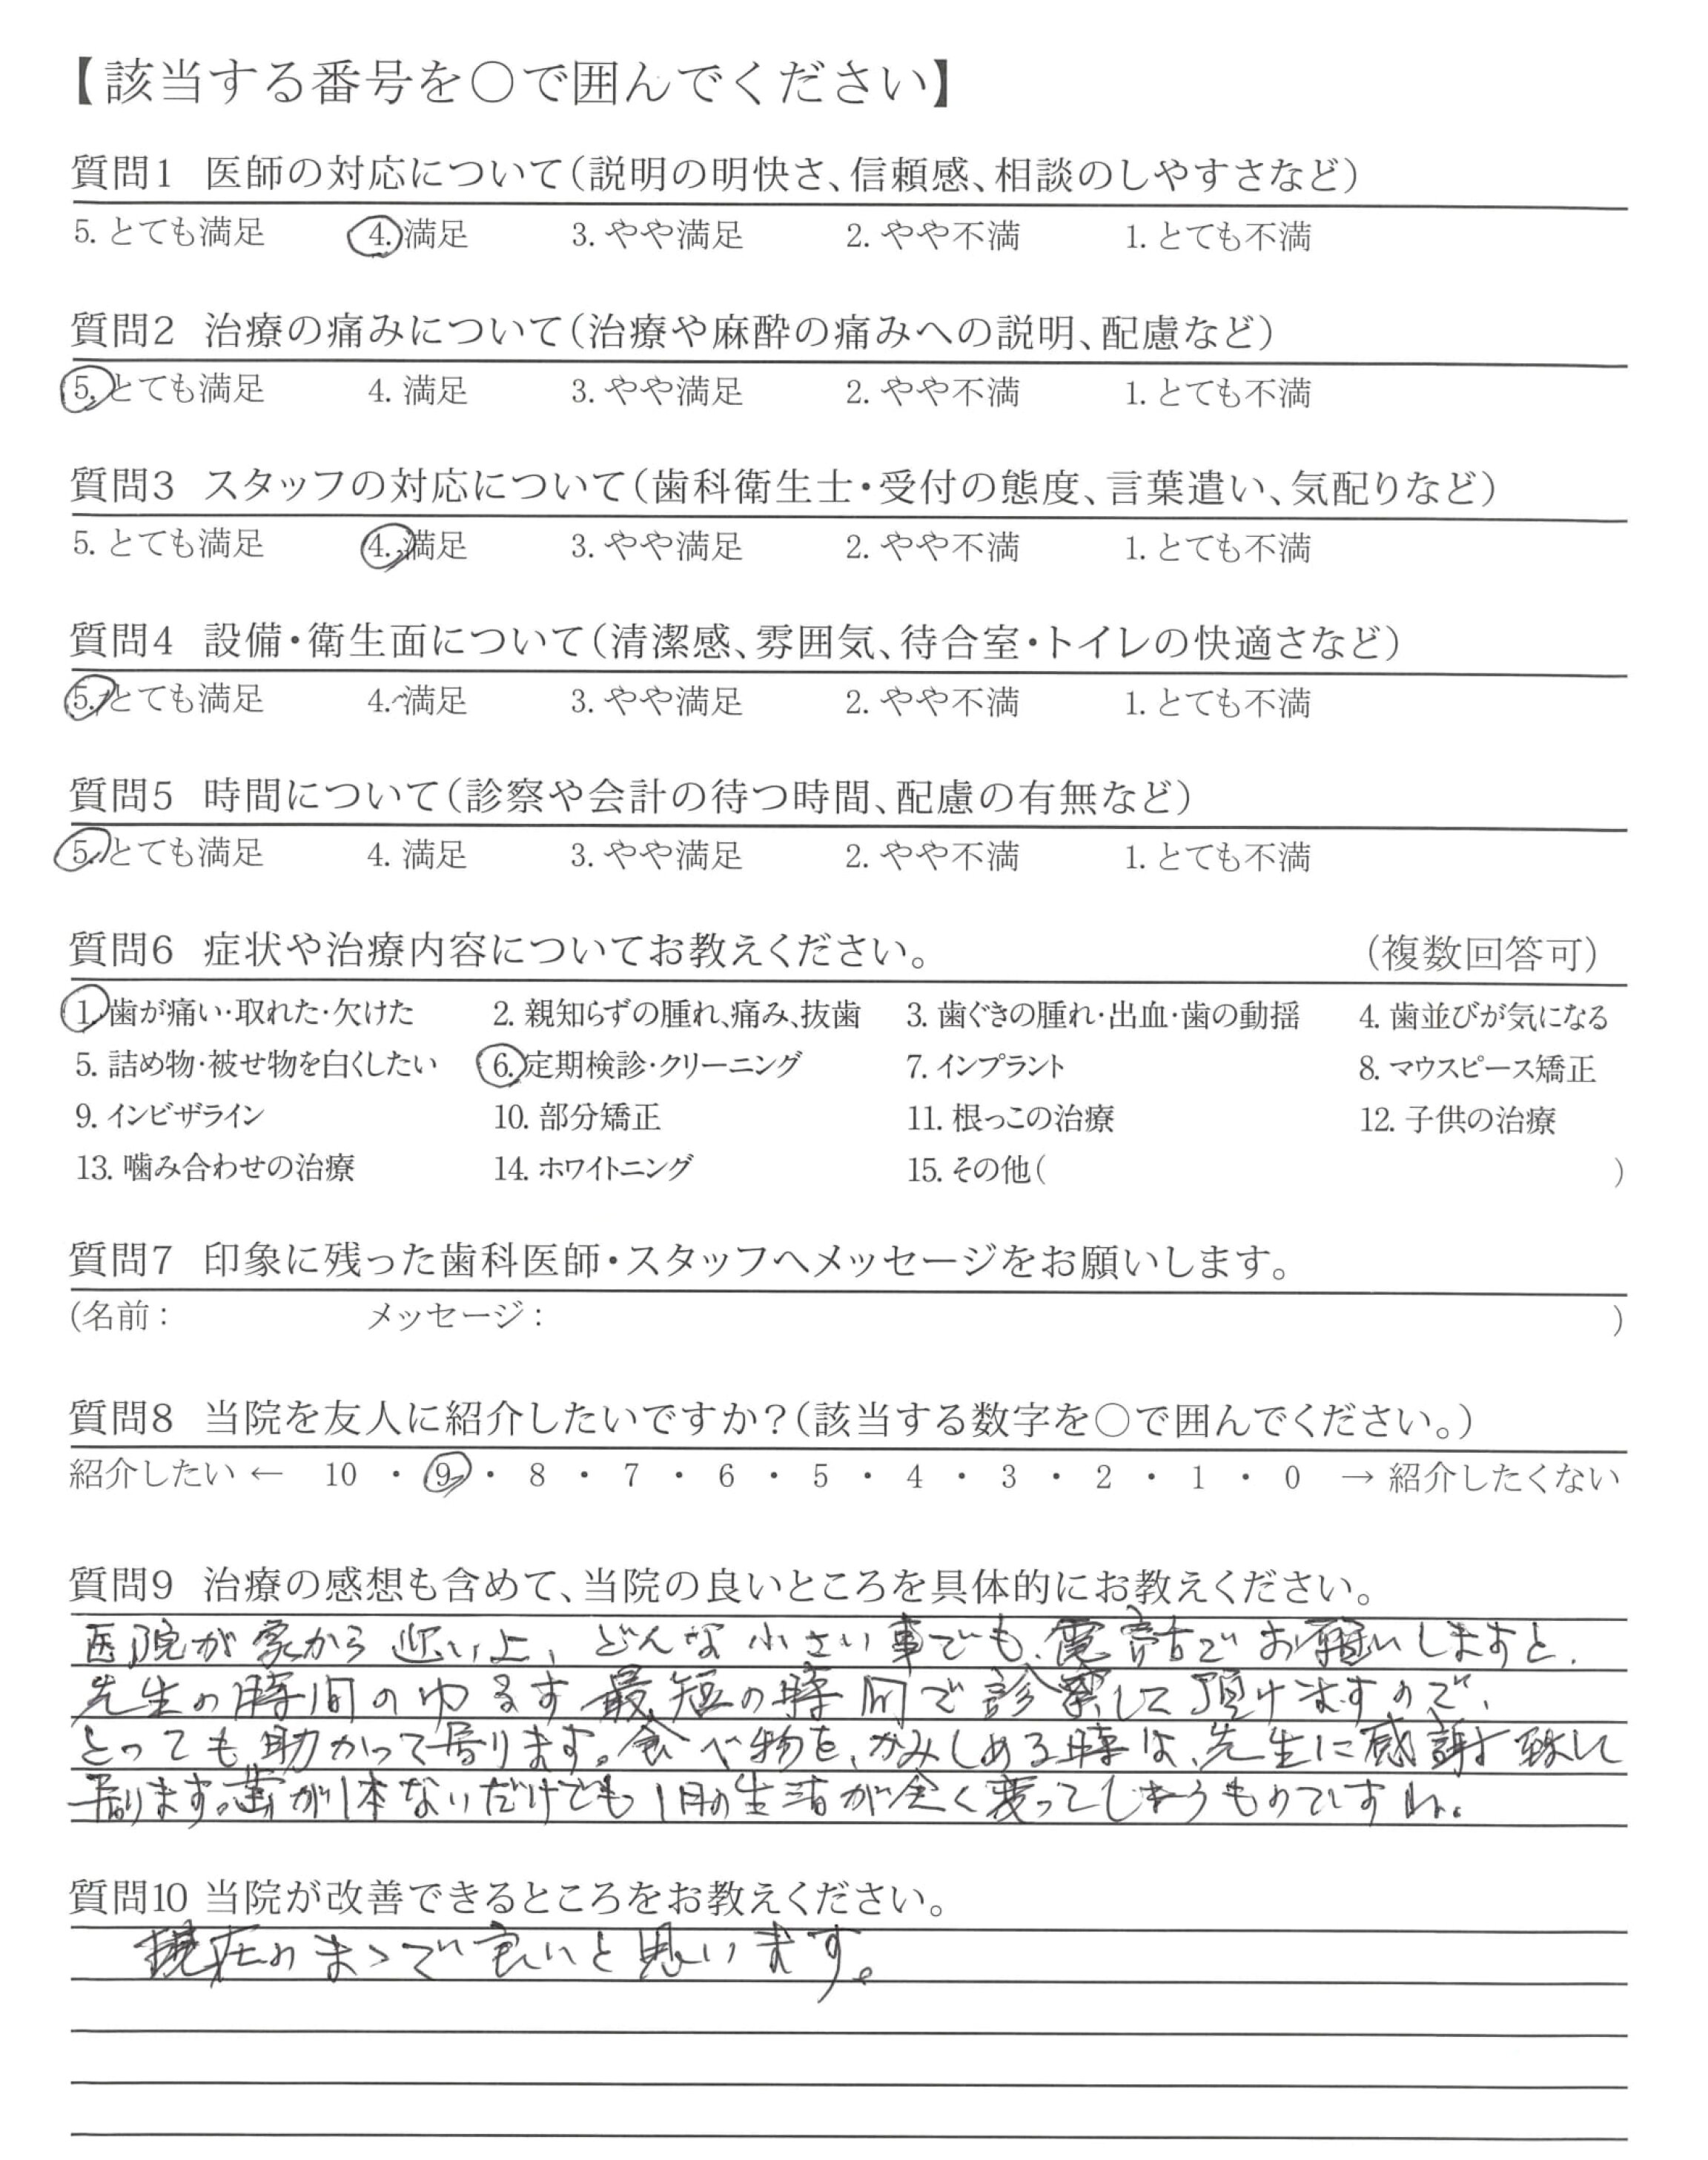 【該当する番号を○で囲んでください】
質問1 医師の対応について(説明の明快さ、信頼感、相談のしやすさなど)
5. とても満足 4. 満足 3. やや満足 2. やや不満 1. とても不満
質問2 治療の痛みについて(治療や麻酔の痛みへの説明、配慮など)
5. とても満足 4. 満足 3. やや満足 2. やや不満 1. とても不満
質問3 スタッフの対応について(歯科衛生士・受付の態度、言葉遣い、気配りなど)
5. とても満足 4. 満足 3. やや満足 2. やや不満 1. とても不満
質問4 設備・衛生面について(清潔感、雰囲気、待合室・トイレの快適さなど)
5. とても満足 4. 満足 3. やや満足 2. やや不満 1. とても不満
質問5 時間について(診察や会計の待つ時間、配慮の有無など)
5. とても満足 4. 満足 3. やや満足 2. やや不満 1. とても不満
質問6 症状や治療内容についてお教えください。 (複数回答可)
1. 歯が痛い・取れた・欠けた 2. 親知らずの腫れ、痛み、抜歯 3. 歯ぐきの腫れ・出血・歯の動揺 4. 歯並びが気になる
5. 詰め物・被せ物を白くしたい 6. 定期検診・クリーニング 7. インプラント 8. マウスピース矯正
9. インビザライン 10. 部分矯正 11. 根っこの治療 12. 子供の治療
13. 噛み合わせの治療 14. ホワイトニング 15. その他( )
質問7 印象に残った歯科医師・スタッフへメッセージをお願いします。
(名前: メッセージ: )
質問8 当院を友人に紹介したいですか?(該当する数字を○で囲んでください。)
紹介したい ← 10 ・ 9 ・ 8 ・ 7 ・ 6 ・ 5 ・ 4 ・ 3 ・ 2 ・ 1 ・ 0 → 紹介したくない
質問9 治療の感想も含めて、当院の良いところを具体的にお教えください。
医院が家から近い上、どんな小さい事でも、電話でお願いしますと、
先生の時間のゆるす最短の時間で診察して頂けますので、
とっても助かって居ります。食べ物を、かみしめる時は、先生に感謝致して
居ります。歯が1本ないだけでも1日の生活が全く変ってしまうものですね。
質問10 当院が改善できるところをお教えください。
現在のまゝで良いと思います。